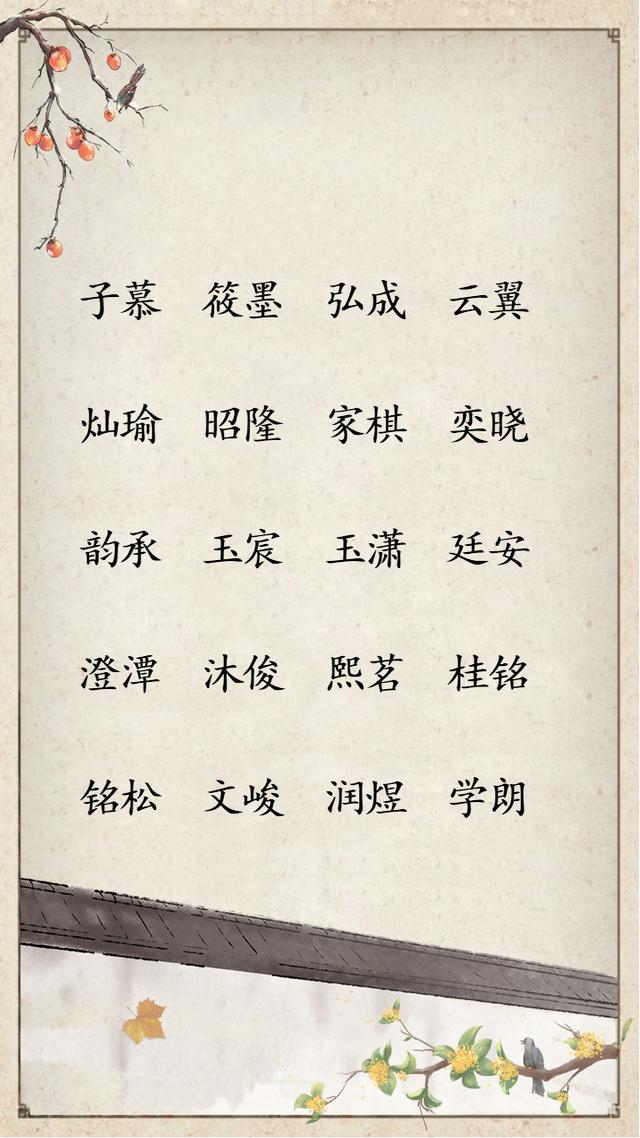 子慕 筱墨 弘成 云翼
灿瑜 昭隆 家棋 奕晓
韵承 玉宸 玉潇 廷安
澄潭 沐俊 熙茗 桂铭
铭松 文峻 润煜 学朗